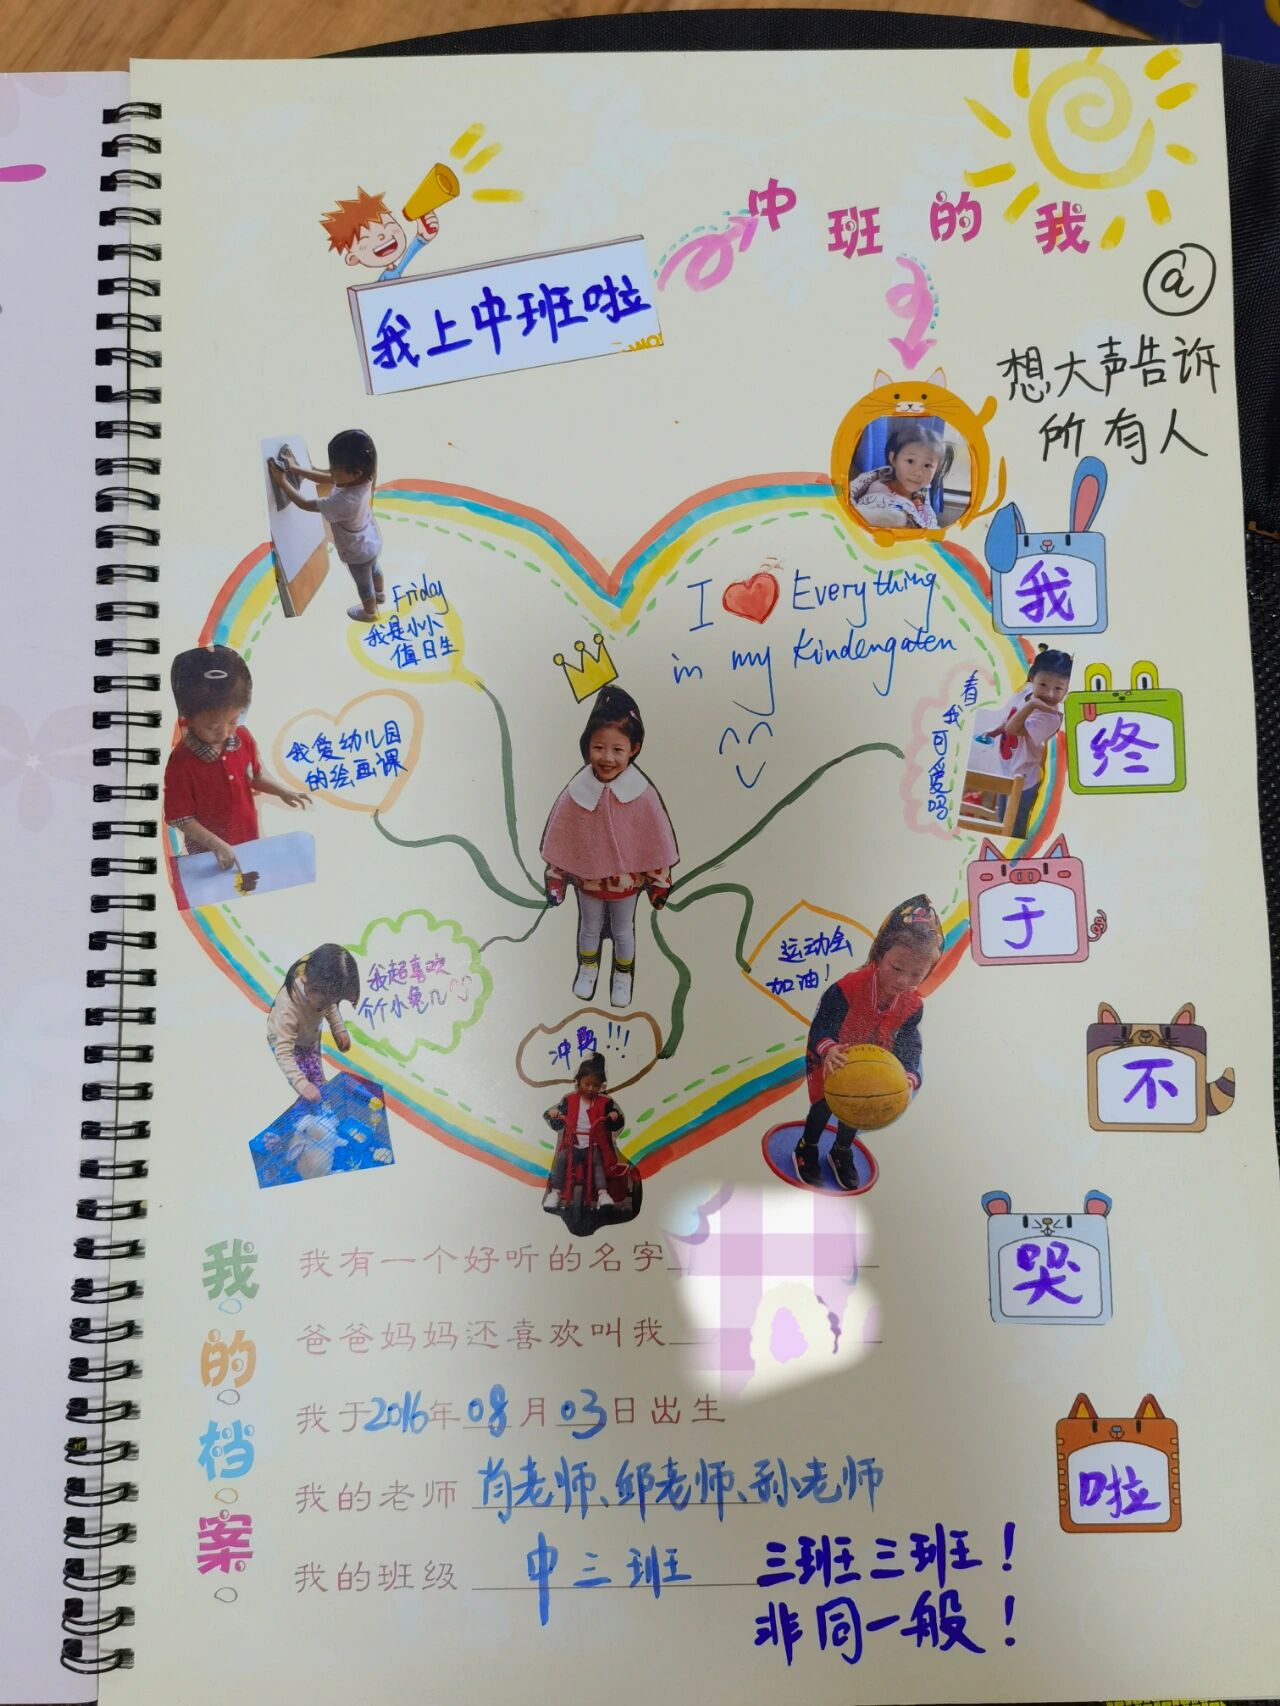 中班的我
我上中班啦
@
想大声告诉
所有人
我
终
于
不
哭
啦
Friday
我是小小
值日生
I ❤ Everything
in my Kindengaten
我爱幼儿园
的绘画课
看我可爱吗
我超喜欢
个小兔几
运动会
加油!
冲鸭!!!
我的档案
我有一个好听的名字
爸爸妈妈还喜欢叫我
我于2016年08月03日出生
我的老师 肖老师、邱老师、孙老师
我的班级 中三班
三班三班!
非同一般!